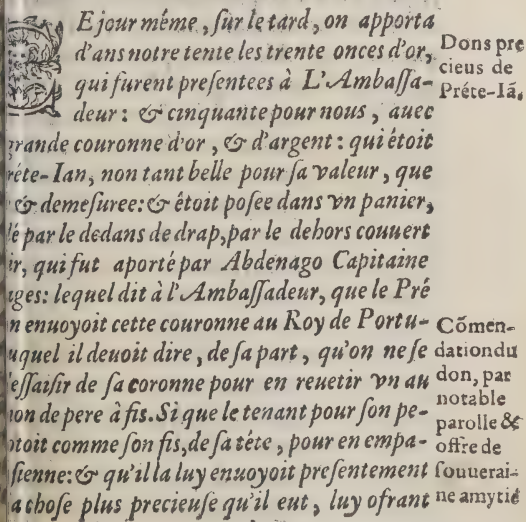 CE jour méme, sur le tard, on apporta
d'ans notre tente les trente onces d'or,
qui furent presentees à L'Ambassa-
deur: & cinquante pour nous, auec
grande couronne d'or, & d'argent: qui étoit
réte-Ian, non tant belle pour sa valeur, que
& demesuree: & étoit posee dans vn panier,
lé par le dedans de drap, par le dehors couuert
ir, qui fut aporté par Abdenago Capitaine
ages: lequel dit à l'Ambassadeur, que le Pré
n enuoyoit cette couronne au Roy de Portu-
uquel il deuoit dire, de sa part, qu'on ne se
essaisir de sa coronne pour en reuetir vn au
non de pere à fis. Si que le tenant pour son pe-
toit comme son fis, de sa téte, pour en empa-
sienne: & qu'il la luy enuoyoit presentement
a chose plus precieuse qu'il eut, luy ofrant
Dons pre
cieus de
Préte-Iã.
Cõmen-
dation du
don, par
notable
parolle &
offre de
souuerai-
ne amytié